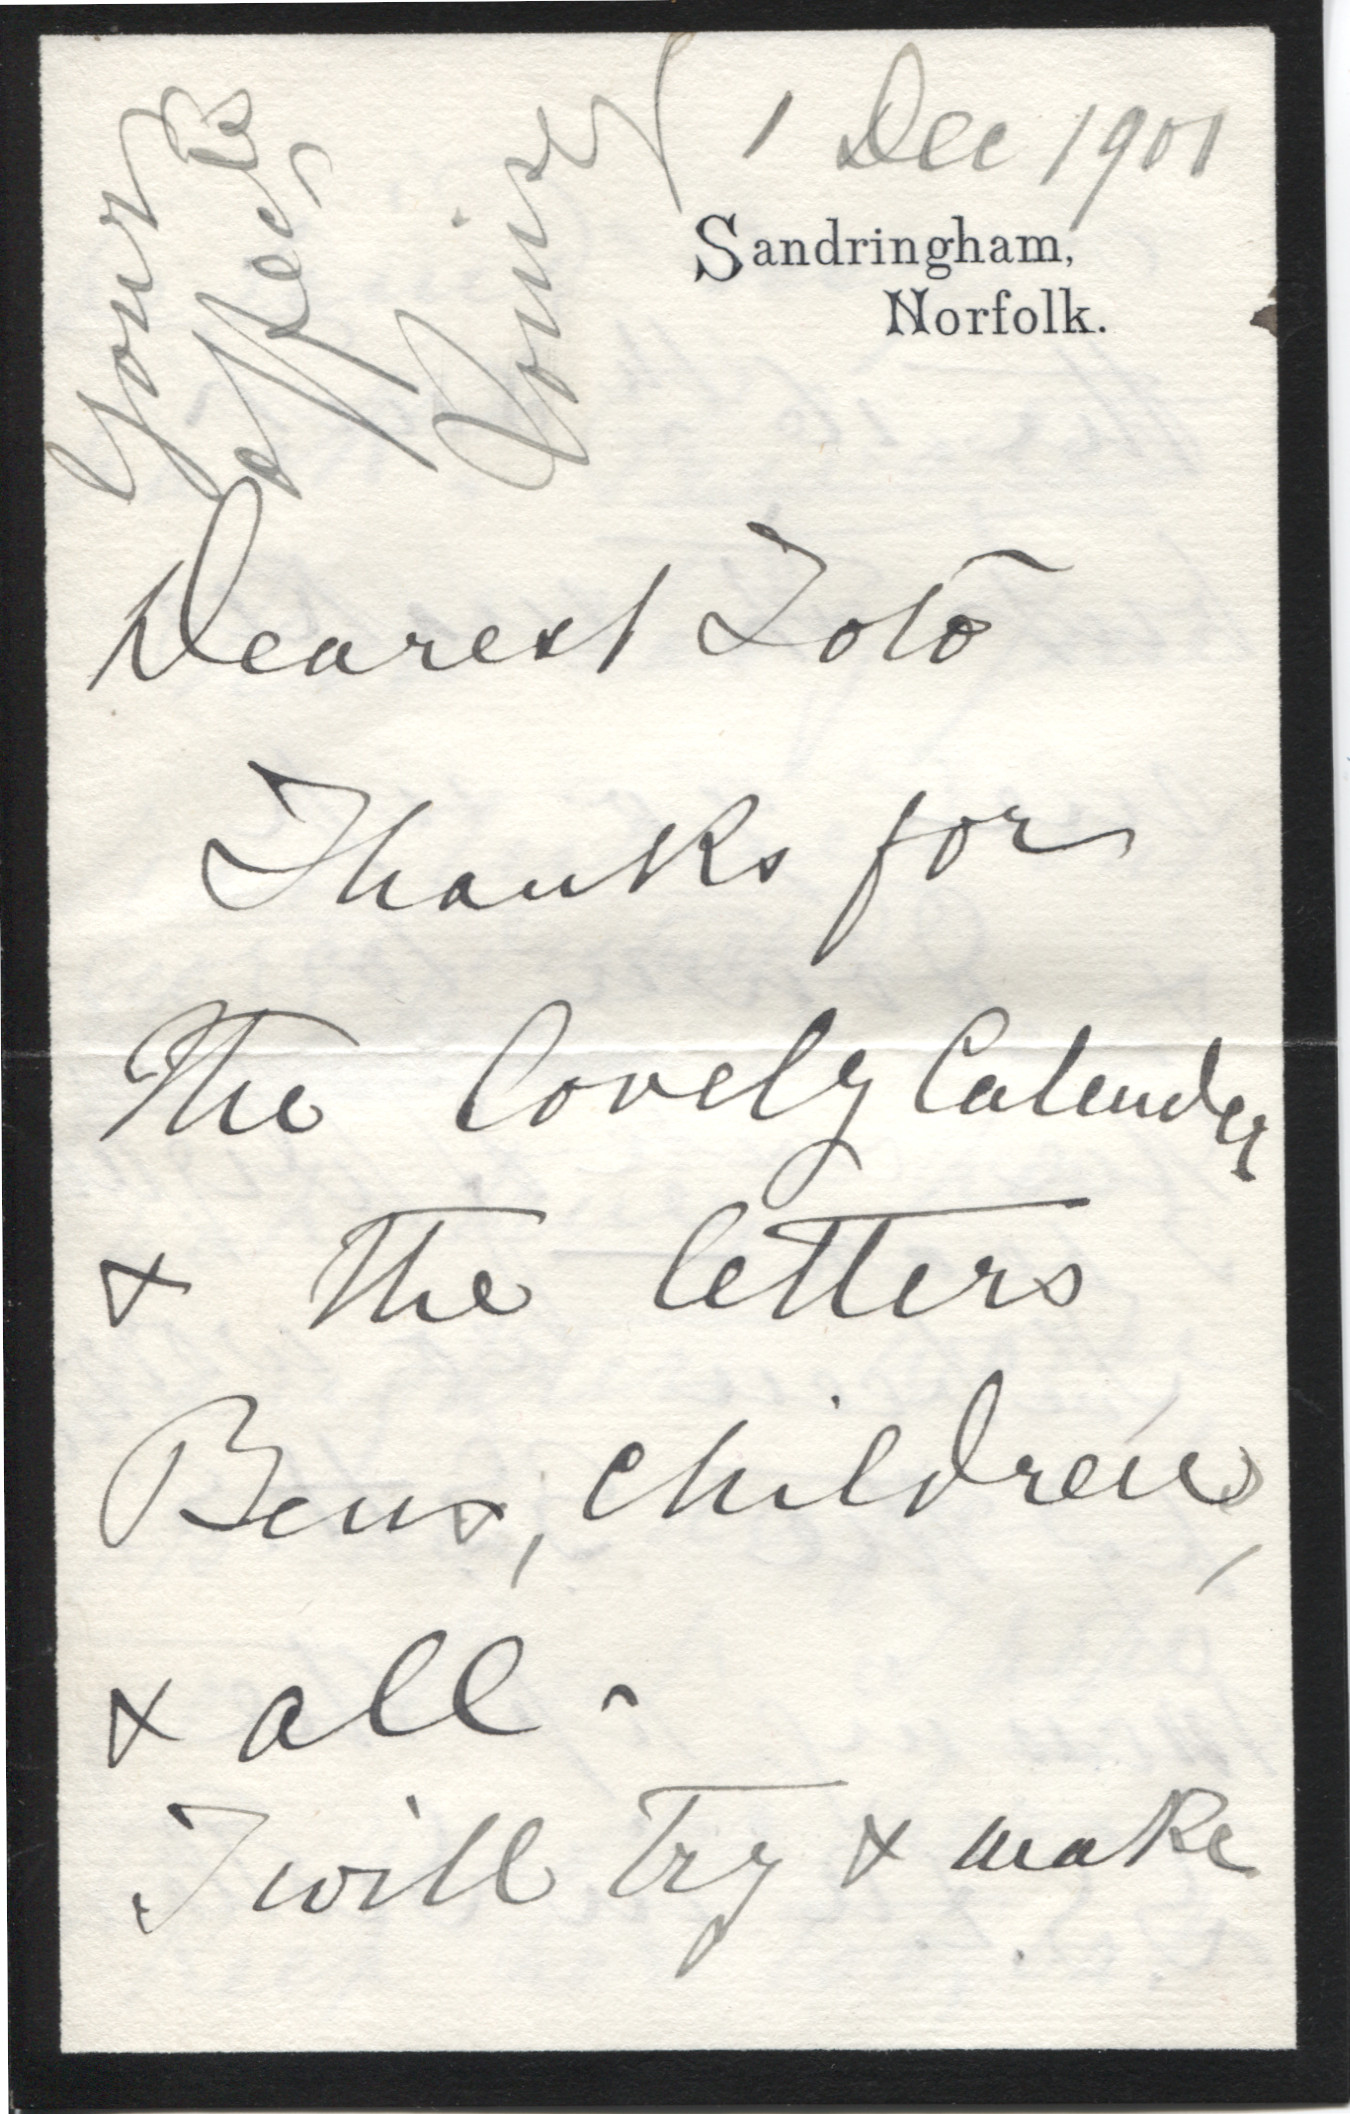 1 Dec 1901
Sandringham,
Norfolk.
Dearest Toto
Thanks for
the lovely Calender
& the letters
Bens, children,
& all -
I will try & make
Your
affec